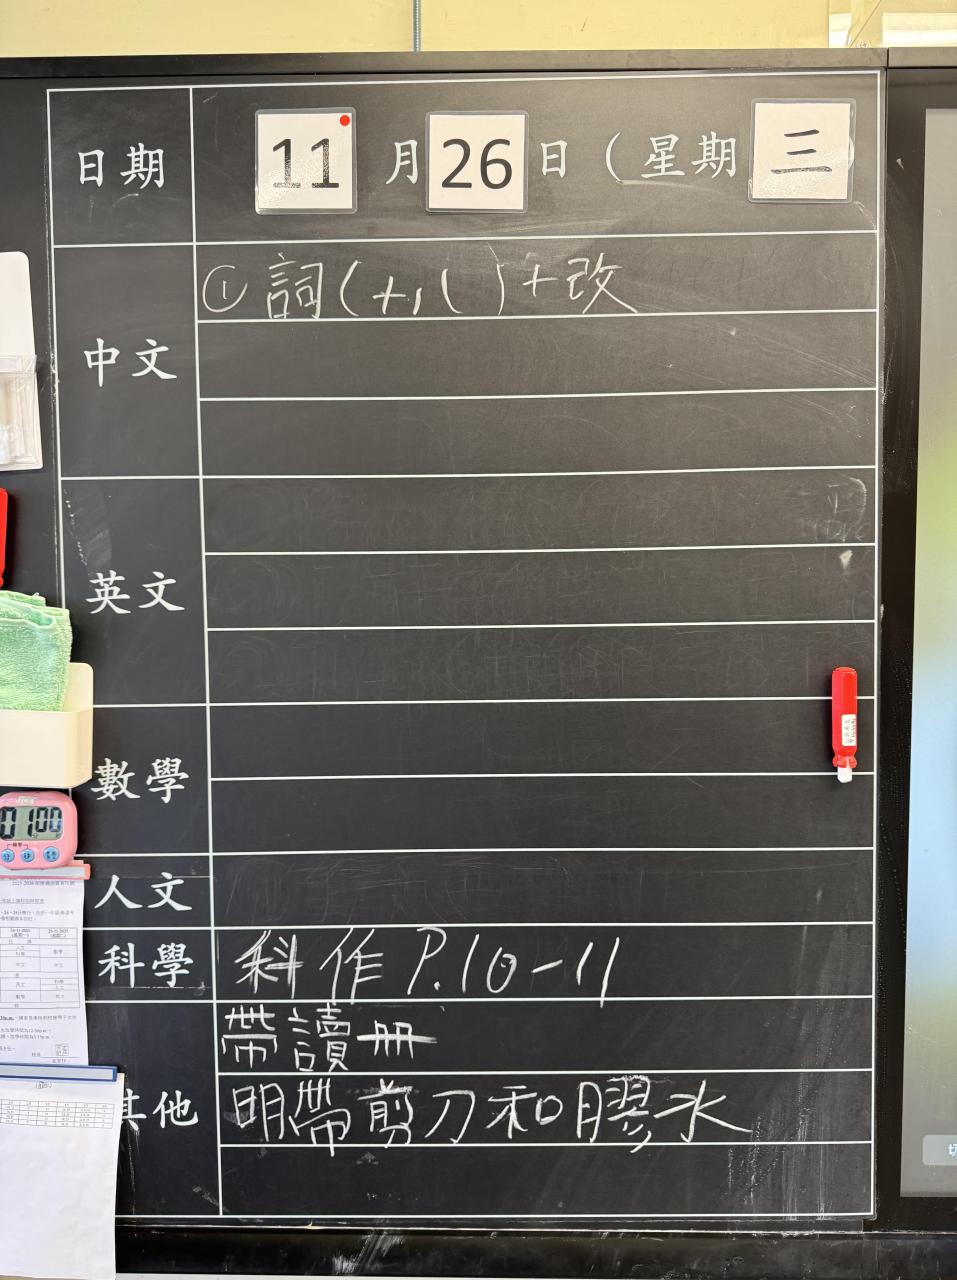 日期 11 月 26 日（星期 三）
中文
① 詞（十八）+改
英文
數學
人文
科學 科作 P.10-11
帶讀冊
其他 明帶剪刀和膠水
01 00